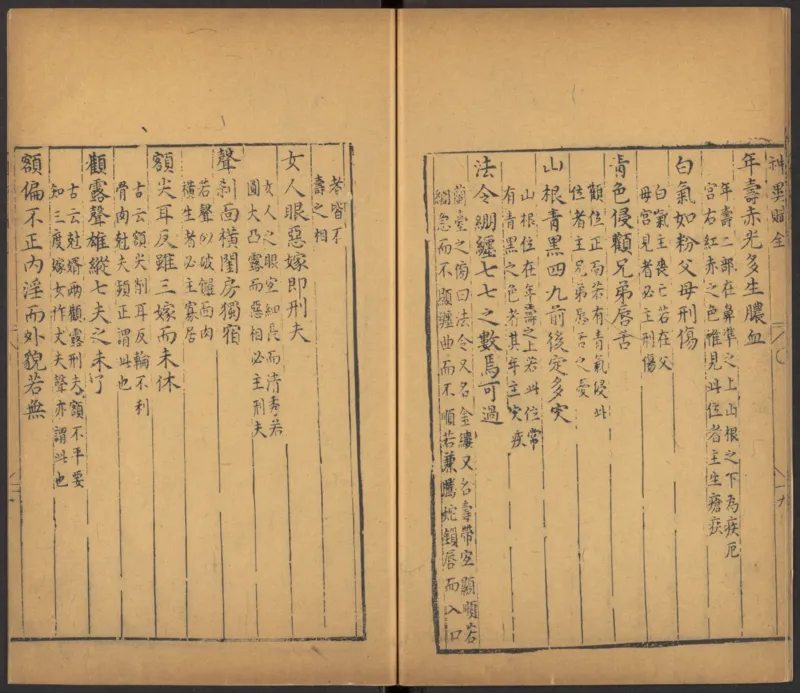 神異賦全
年壽赤光多生膿血
年壽二部在鼻準之上山根之下為疾厄
宮右紅赤之色惟見此位者主生瘡疾
白氣如粉父母刑傷
白氣主喪亡若在父
母宮見者必主刑傷
青色侵顴兄弟唇舌
顴位正面若有青氣侵此
位者主兄弟唇舌之憂
山根青黑四九前後定多灾
山根位在年壽之上若此位常
有青黑之色者其年主灾疾
法令綳纏七七之數焉可過
蘭臺之傍曰法令又名金縷又名壽帶宜顯順若
綳急而不顯纏曲而不順若兼騰蛇鎖唇而入口
者皆不
壽之相
女人眼惡嫁即刑夫
女人之眼宜細長而清秀若
圓大凸露而惡相必主刑夫
聲剎面橫閨房獨宿
若聲似破鑼面肉
橫生者必主寡居
額尖耳反雖三嫁而未休
古云額尖削耳反輪不利
骨肉尅夫頻正謂此也
顴露聲雄縱七夫之未了
古云尅婿兩顴露刑夫額不平要
知三度嫁女作丈夫聲亦謂此也
額偏不正內淫而外貌若無